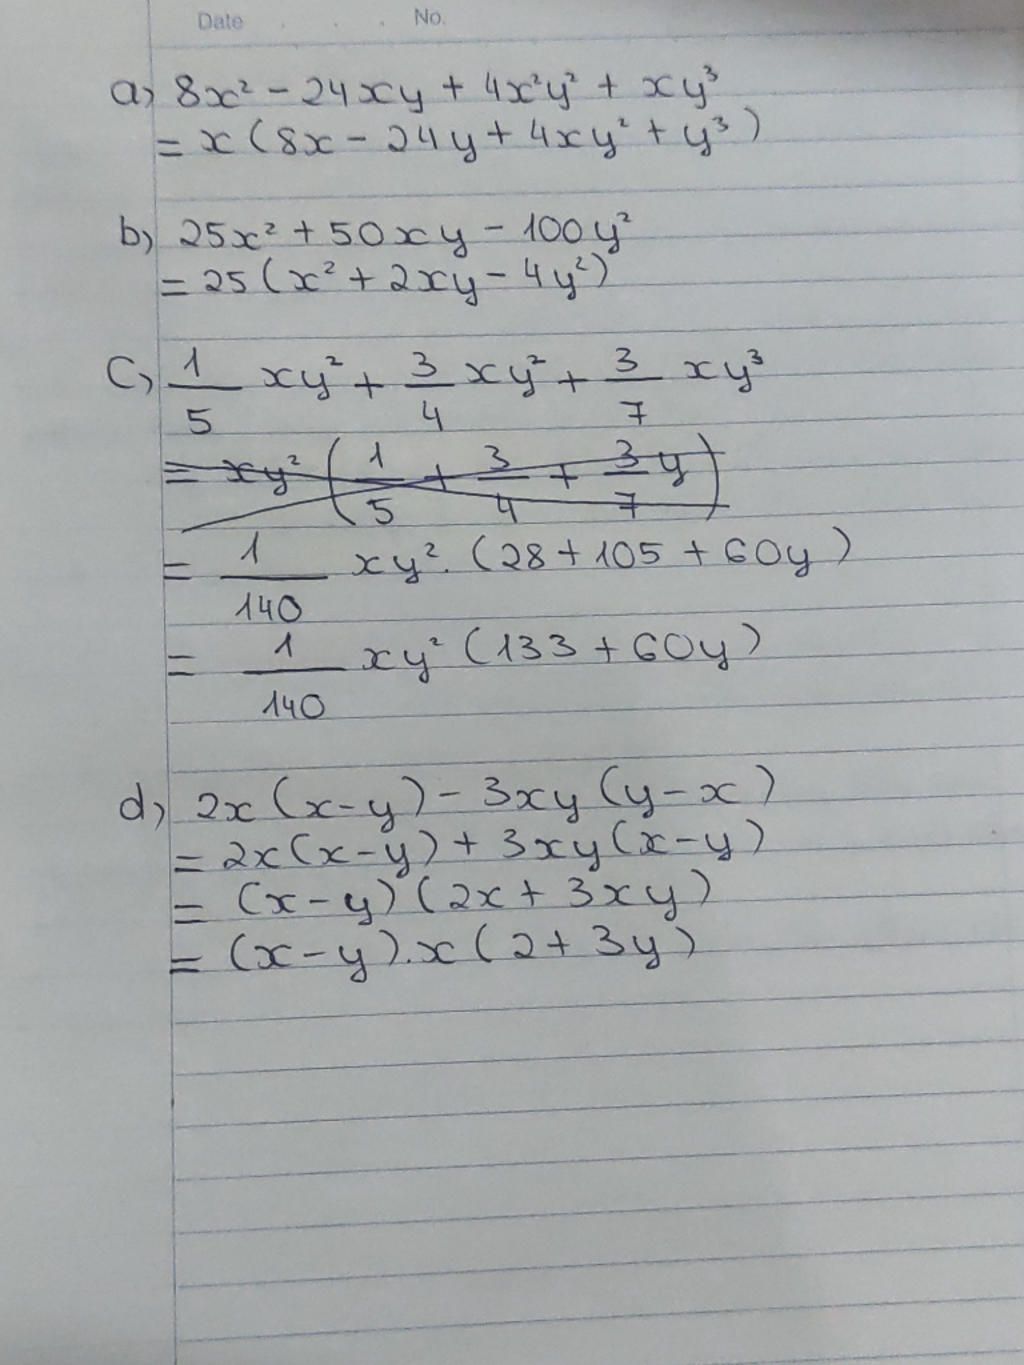 Date . . . No.
a) 8x² - 24xy + 4x²y² + xy³
= x(8x - 24y + 4xy² + y³)
b) 25x² + 50xy - 100y²
= 25(x² + 2xy - 4y²)
c) 1/5 xy² + 3/4 xy² + 3/7 xy³
= xy² (1/5 + 3/4 + 3/7 y)
= 1/140 xy². (28 + 105 + 60y)
= 1/140 xy² (133 + 60y)
d) 2x(x-y) - 3xy(y-x)
= 2x(x-y) + 3xy(x-y)
= (x-y)(2x + 3xy)
= (x-y).x(2 + 3y)